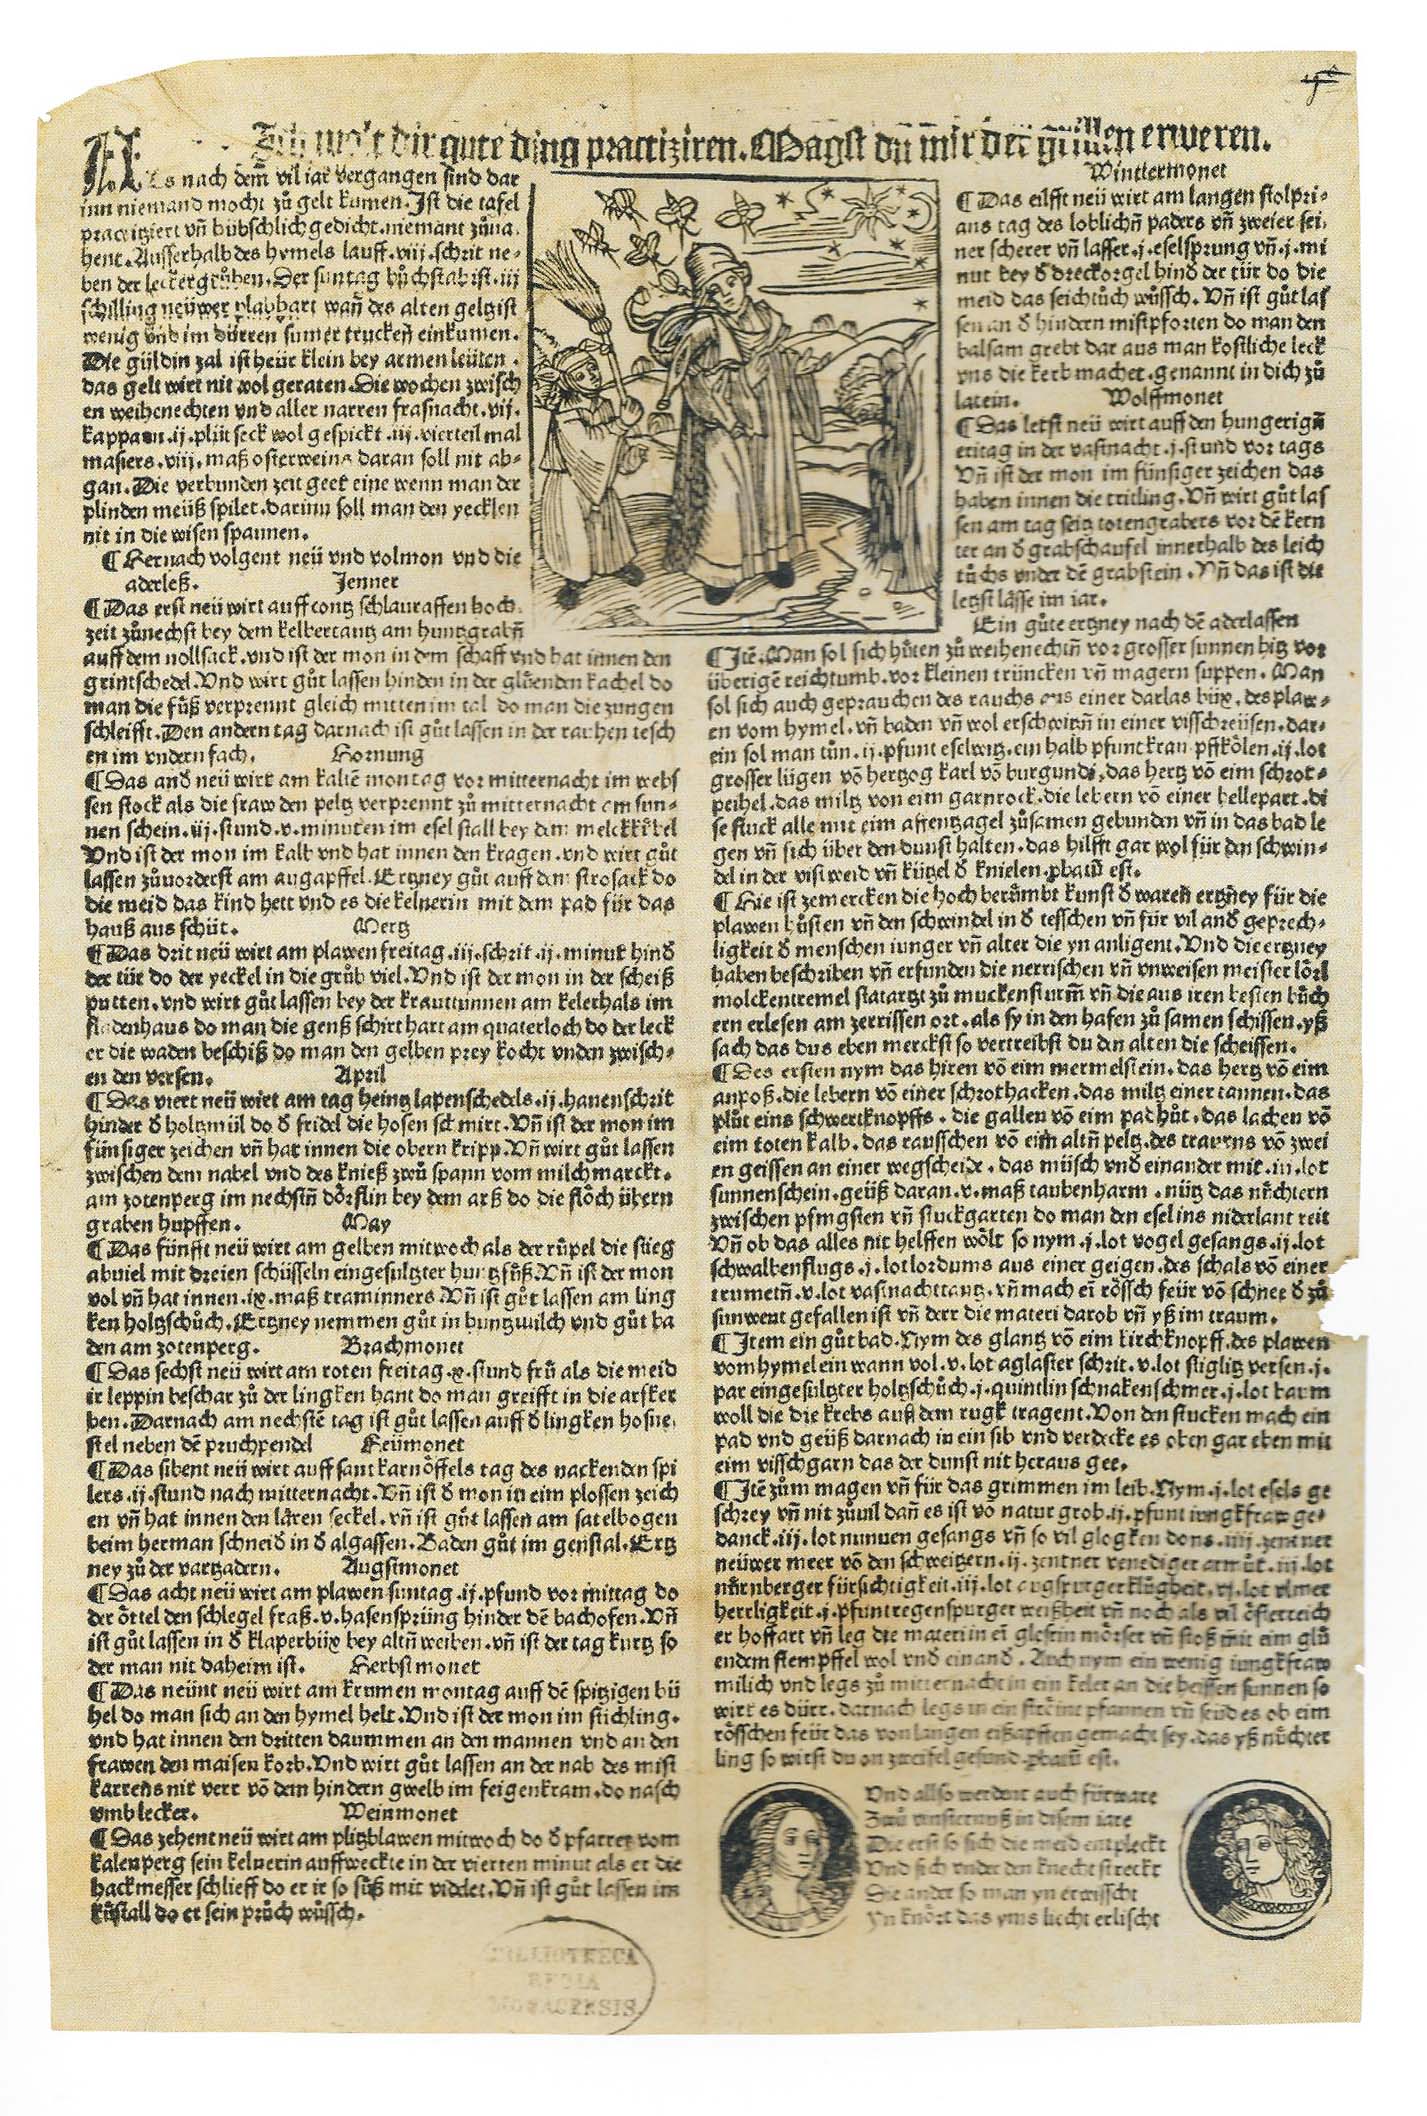 Ich wo't dir gute ding practiziren. Magst dū mir der grillen erweren.
Als nach dem vil iar vergangen sind dar
inn niemand mocht zů gelt kumen. Ist die tafel
practiziert vñ hübschlich gedicht. niemant zůua.
hent. Ausserhalb des hymels lauff. viij. schrit ne-
ben der leckergrůben. Der suntag bůchstab ist .iij
schilling neüwer plabhart wañ des alten geltz ist
wenig vnd im dürren sumer trucken einkumen.
Die güldin zal ist heür klein bey armen leüten.
das gelt wirt nit wol geraten. Die wochen zwisch
en weihenechten vnd aller narren frasnacht. vij.
kappaun. ij. plüt seck wol gespickt. iij. vierteil mal
masiers. viij. maß osterweins daran soll nit ab-
gan. Die verbunden zeit geet eine wenn man der
plinden meüß spilet. darinn soll man den yecklen
nit in die wisen spannen.
¶ Hernach volgent neü vnd volmon vnd die
aderleß. Jenner
¶ Das erst neü wirt auff contz schlauraffen hoch
zeit zůnechst bey dem kelbertantz am huntzgrabñ
auff dem nollsack. vnd ist der mon in dem schaff vnd hat innen den
grintschedel. Vnd wirt gůt lassen hinden in der glüenden kachel do
man die füß verprennt gleich mitten im tal do man die zungen
schleifft. Den andern tag darnach ist gůt lassen in der rauhen tesch
en im vndern fach. Hornung
¶ Das and neü wirt am kaltē montag vor mitternacht im webs
sen stock als die fraw den peltz verprennt zů mitternacht am sun-
nen schein. iij. stund. v. minuten im esel stall bey dem melckkübel
Vnd ist der mon im kalb vnd hat innen den kragen. vnd wirt gůt
lassen zůuorderst am augapffel. Ertzney gůt auff dem strosack do
die meid das kind hett vnd es die kelnerin mit dem pad für das
hauß aus schüt. Mertz
¶ Das drit neü wirt am plawen freitag. iij. schrit. ij. minut hind
der tür do der yeckel in die grůb viel. Vnd ist der mon in der scheiß
putten. vnd wirt gůt lassen bey der krauttunnen am kelerhals im
fladenhaus do man die genß schirt hart am quaterloch do der leck
er die waden beschiß do man den gelben prey kocht vnden zwisch-
en den versen. April
¶ Das viert neü wirt am tag heintz lapenschedels. ij. hanenschrit
hinder d holtzmül do d fridel die hosen schmirt. Vñ ist der mon im
fünsiger zeichen vñ hat innen die obern kripp. Vñ wirt gůt lassen
zwischen dem nabel vnd des knieß zwů spann vom milchmarckt.
am zotenperg im nechstñ dörflin bey dem arß do die flöch übern
graben hupffen. May
¶ Das fünfft neü wirt am gelben mitwoch als der rüpel die stieg
abuiel mit dreien schüsseln eingesultzter huntzfüß. Vñ ist der mon
vol vñ hat innen. ix. maß traminners. Vñ ist gůt lassen am ling
ken holtzschůch. Ertzney nemmen gůt in huntzmilch vnd gůt ba
den am zotenperg. Brachmonet
¶ Das sechst neü wirt am roten freitag. x. stund frů als die meid
ir leppin beschar zů der lingken hant do man greifft in die arsker
ben. Darnach am nechstē tag ist gůt lassen auff d lingken hosne.
stel neben dē pruchpendel Heümonet
¶ Das sibent neü wirt auff sant karnöffels tag des nackenden spi
lers. ij. stund nach mitternacht. Vñ ist d mon in eim plossen zeich
en vñ hat innen den lären seckel. vñ ist gůt lassen am satelbogen
beim herman schneid in d algassen. Baden gůt im genstal. Ertz
ney zů der vartzadern. Augstmonet
¶ Das acht neü wirt am plawen suntag. ij. pfund vor mittag do
der öttel den schlegel fraß. v. hasensprüng hinder dē bachofen. Vñ
ist gůt lassen in d klaperbüx bey altñ weiben. vñ ist der tag kurtz so
der man nit daheim ist. Herbstmonet
¶ Das neünt neü wirt am krumen montag auff dē spitzigen bü
hel do man sich an den hymel helt. Vnd ist der mon im stichling.
vnd hat innen den dritten daummen an den mannen vnd an den
frawen den maisen korb. Vnd wirt gůt lassen an der nab des mist
karrens nit verr vō dem hindern gwelb im feigenkram. do nasch
vmb lecker. Weinmonet
¶ Das zehent neü wirt am plitzblawen mitwoch do d pfarrer vom
kalenperg sein kelnerin auffweckte in der vierten minut als er die
hackmesser schlieff do er ir so süß mit videlet. Vñ ist gůt lassen im
kůstall do er sein průch wůssch.
Wintermonet
¶ Das eilfft neü wirt am langen stolpri-
ans tag des loblichñ paders vñ zweier sei.
ner scherer vñ lasser. j. eselsprung vñ. j. mi
nut bey d dreckorgel hind der tür do die
meid das seichtůch wůssch. Vñ ist gůt las
sen an d hindern mistpforten do man den
balsam grebt dar aus man kostliche leck
vns die kerb machet. genannt in dich zů
latein. Wolffmonet
¶ Das letst neü wirt auff den hungerigñ
eritag in der vastnacht. j. stund vor tags
Vñ ist der mon im fünsiger zeichen das
haben innen die tritling. Vñ wirt gůt las
sen am tag seins totengrabers vor dē kern
ter an d grabschaufel innerhalb des leich
tůchs vnder dē grabstein. Vñ das ist die
letzst lässe im iar.
Ein gůte ertzney nach dē aderlassen
¶ Itē. Man sol sich hůten zů weihenechtñ vor grosser sunnen hitz vor
überigē reichtumb. vor kleinen trüncken vñ magern suppen. Man
sol sich auch geprauchen des rauchs aus einer darlas büx. des plaw-
en vom hymel. vñ baden vñ wol erschwitzñ in einer visschreüsen. dar-
ein sol man tůn. ij. pfunt eselwitz. ein halb pfunt krau pffkölen. ij. lot
grosser lügen vō hertzog karl vō burgundi. das hertz vō eim schrot-
peihel. das miltz von eim garnrock. die lebern vō einer hellepart. di
se stuck alle mit eim affentzagel zůsamen gebunden vñ in das bad le
gen vñ sich über den dunst halten. das hilfft gar wol für den schwin-
del in der vistweid vñ kützel d knielen. pbatū est.
¶ Hie ist zemercken die hoch berůmbt kunst d waren ertzney für die
plawen hůsten vñ den schwindel in d tesschen vñ für vil and geprech-
ligkeit d menschen iunger vñ alter die yn anligent. Vnd die ertzney
haben beschriben vñ erfunden die nerrischen vñ vnweisen meister lörl
molckentremel statartzt zů muckensturm̃ vñ die aus iren besten bůch
ern erlesen am zerrissen ort. als sy in den hafen zů samen schissen. yß
sach das dus eben merckst so vertreibst du den alten die scheissen.
¶ Des ersten nym das hiren vō eim mermelstein. das hertz vō eim
anpoß. die lebern vō einer schrothacken. das miltz einer tannen. das
plůt eins schwertknopffs. die gallen vō eim padhůt. das lachen vō
eim toten kalb. das rausschen vō eim altñ peltz. des traurns vō zwei
en geissen an einer wegscheide. das müsch vnd einander mit. iii. lot
sunnenschein. geüß daran. v. maß taubenharm. nütz das nüchtern
zwischen pfingsten vñ stuckgarten do man den esel ins niderlant reit
Vñ ob das alles nit helffen wölt so nym. j. lot vogel gesangs. ij. lot
schwalbenflugs. j. lot lordums aus einer geigen. des schals vō einer
trumetñ. v. lot vasinachttantz. vñ mach ei rössch feür vō schnee d zů
sunwent gefallen ist vñ derr die materi darob vñ yß im traum.
¶ Item ein gůt bad. Nym des glantz vō eim kirchknopff. des plawen
vom hymel ein wann vol. v. lot aglaster schrit. v. lot stiglitz versen. j.
par eingesultzter holtzschůch. j. quintlin schnakenschmer. j. lot baum
woll die die krebs auß dem rugk tragent. Von den stucken mach ein
pad vnd geüß darnach in ein sib vnd verdecke es oben gar eben mit
eim visschgarn das der dunst nit heraus gee.
¶ Itē zům magen vñ für das grimmen im leib. Nym. j. lot esels ge
schrey vñ nit zůuil dañ es ist vō natur grob. ij. pfunt iungkfraw ge-
danck. iij. lot nunnen gesangs vñ so vil glogken dons. iiij. zentner
neüwer meer vō den schweitzern. ij. zentner venediger armůt. iij. lot
nürnberger fürsichtigkeit. iij. lot augspurger klůgheit. vj. lot vlmer
herrligkeit. j. pfunt regenspurger weißheit vñ noch als vil österreich
er hoffart vñ leg die materi in ei glesein mörser vñ stoß mit eim glů
endem stempffel wol vnd einand. Auch nym ein wenig iungkfraw
milich vnd legs zů mitternacht in ein keler an die heissen sunnen so
wirt es dürr. darnach legs in ein ströine pfannen vñ seüd es ob eim
rösschen feür das von langen eißzapffen gemacht sey. das yß nüchter
ling so wirst du on zweifel gesund. pbatū est.
Vnd allso werdent auch fürware
Zwů vinsternuß in disem iare
Die erst so sich die meid entpleckt
Vnd sich vnder den knecht streckt
Die ander so man yn erwisscht
Yn knört das yms liecht erlischt
BIBLIOTHECA
REGIA
MONACENSIS.